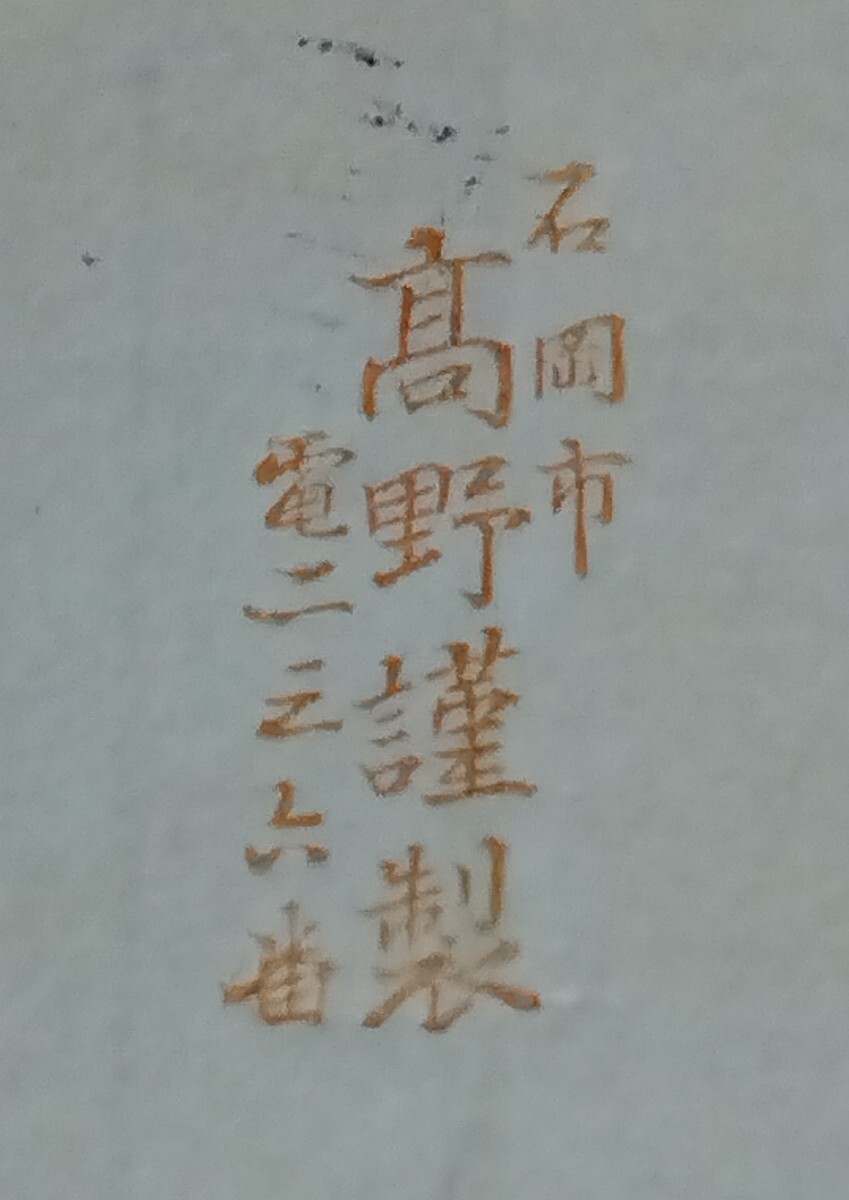 石岡市
髙野謹製
電二三六番